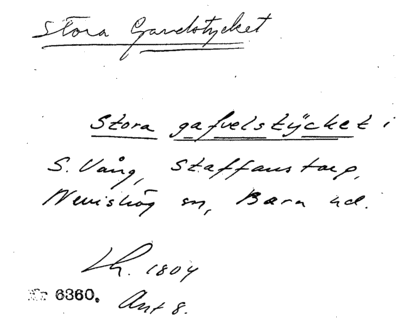 Stora Gavelstycket
Stora gafvelstÿcket i
S. Vång, Staffanstorp,
Nevishög sn, Bara hd.
Lh. 1804
Nr 6360. Akt 8.